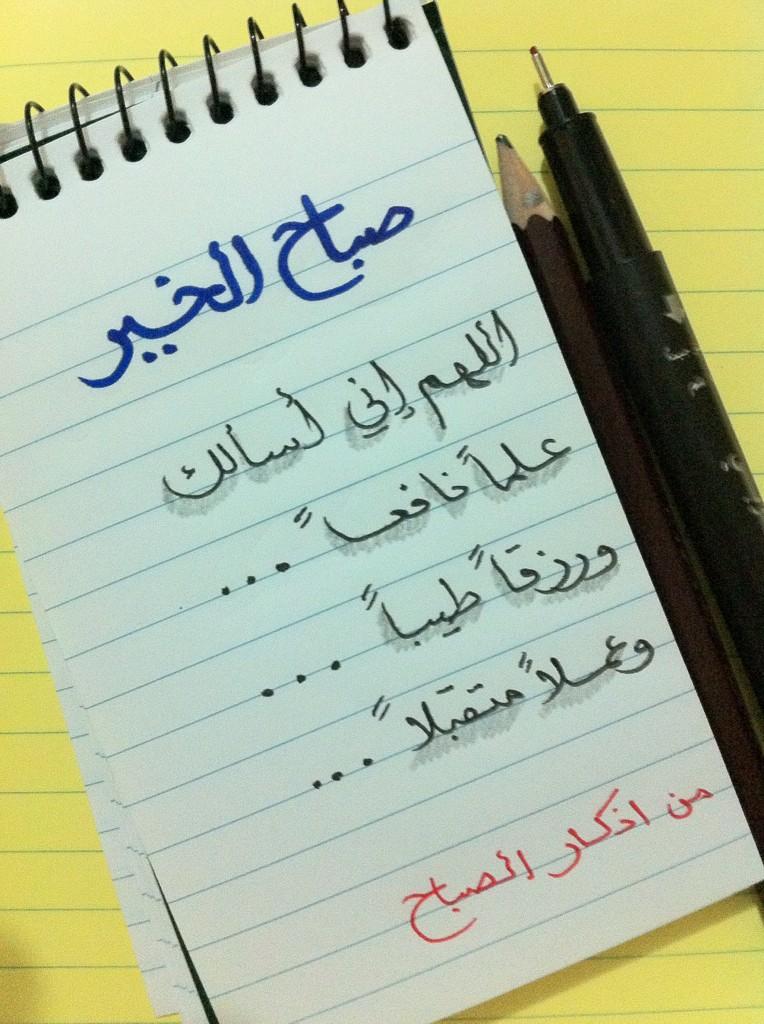 صباح الخير
اللهم إني أسالك
علماً نافعاً ...
ورزقاً طيباً ...
وعملاً متقبّلاً ...
من اذكار الصباح